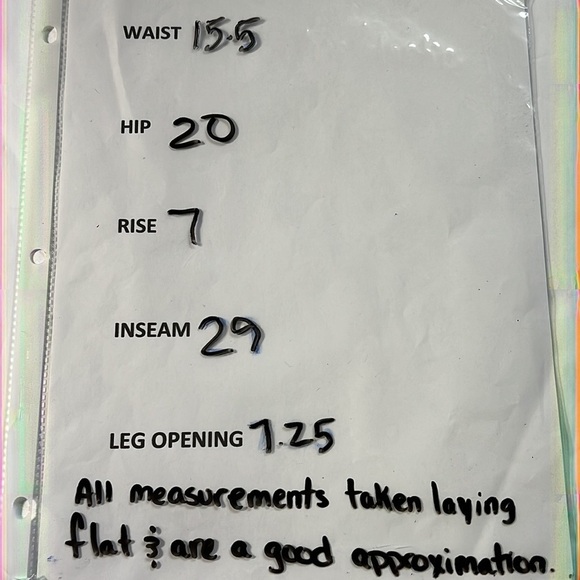 WAIST 15.5
HIP 20
RISE 7
INSEAM 29
LEG OPENING 7.25
All measurements taken laying
flat & are a good approximation.